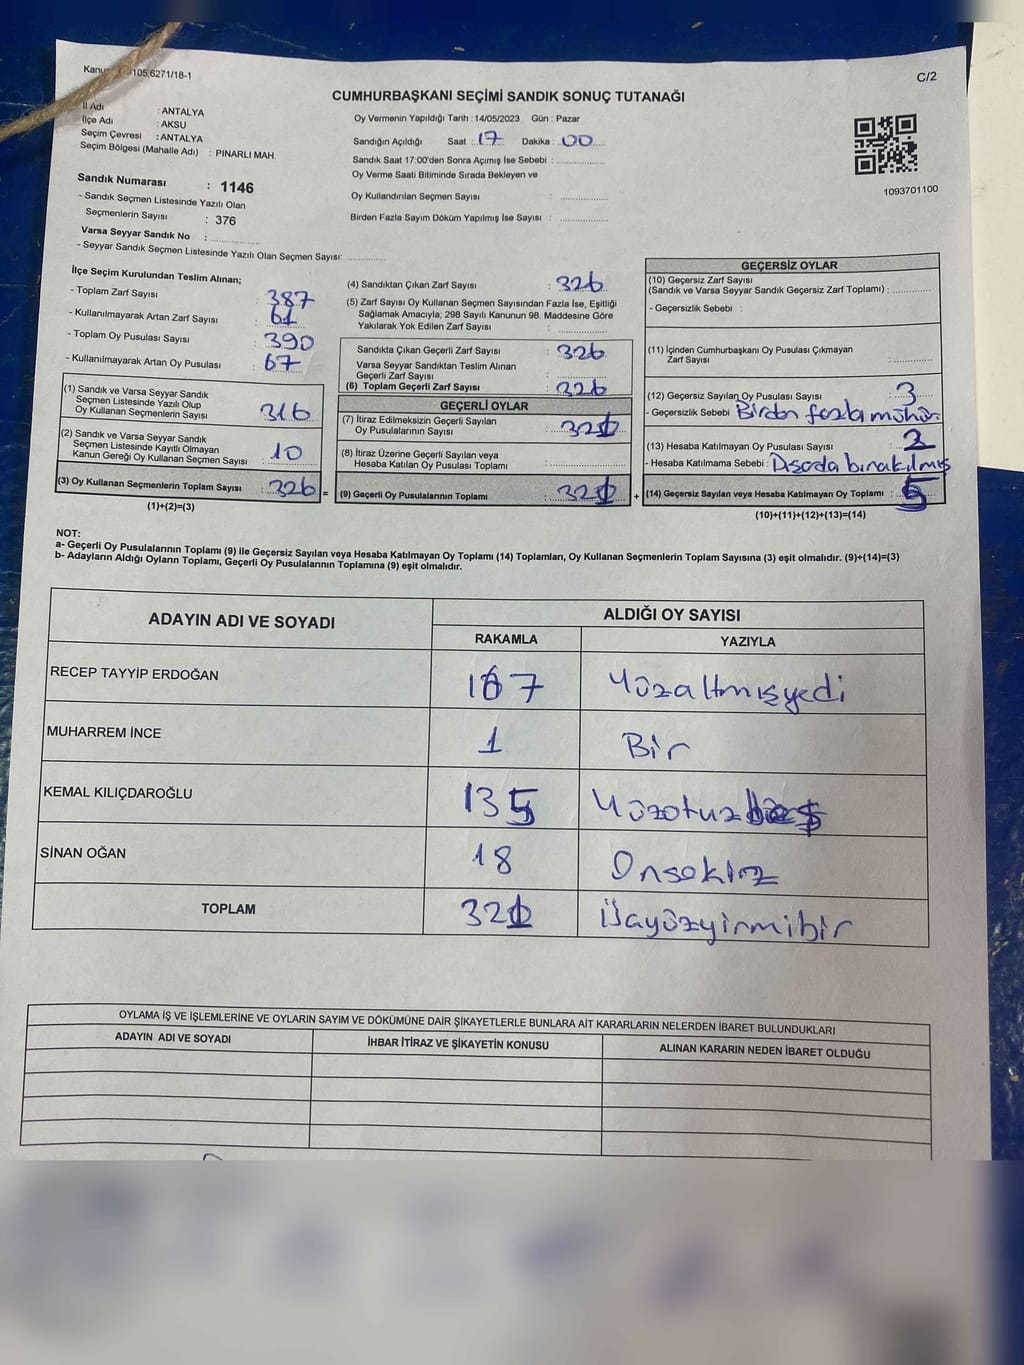 105.6271/18-1
C/2
CUMHURBAŞKANI SEÇİMİ SANDIK SONUÇ TUTANAĞI
İl Adı : ANTALYA
İlçe Adı : AKSU
Seçim Çevresi : ANTALYA
Seçim Bölgesi (Mahalle Adı) : PINARLI MAH.
Oy Vermenin Yapıldığı Tarih : 14/05/2023 Gün : Pazar
Sandığın Açıldığı Saat : 17 Dakika : 00
Sandık Saat 17:00'den Sonra Açımış İse Sebebi :
Oy Verme Saati Bitiminde Sırada Bekleyen ve
Oy Kullandırılan Seçmen Sayısı :
Birden Fazla Sayım Döküm Yapılmış İse Sayısı :
1093701100
Sandık Numarası : 1146
- Sandık Seçmen Listesinde Yazılı Olan
Seçmenlerin Sayısı : 376
Varsa Seyyar Sandık No :
- Seyyar Sandık Seçmen Listesinde Yazılı Olan Seçmen Sayısı:
İlçe Seçim Kurulundan Teslim Alınan;
- Toplam Zarf Sayısı : 387
- Kullanılmayarak Artan Zarf Sayısı : 61
- Toplam Oy Pusulası Sayısı : 390
- Kullanılmayarak Artan Oy Pusulası : 67
(1) Sandık ve Varsa Seyyar Sandık
Seçmen Listesinde Yazılı Olup
Oy Kullanan Seçmenlerin Sayısı : 316
(2) Sandık ve Varsa Seyyar Sandık
Seçmen Listesinde Kayıtlı Olmayan
Kanun Gereği Oy Kullanan Seçmen Sayısı : 10
(3) Oy Kullanan Seçmenlerin Toplam Sayısı : 326
(1)+(2)=(3)
=
(4) Sandıktan Çıkan Zarf Sayısı : 326
(5) Zarf Sayısı Oy Kullanan Seçmen Sayısından Fazla İse, Eşitliği
Sağlamak Amacıyla; 298 Sayılı Kanunun 98. Maddesine Göre
Yakılarak Yok Edilen Zarf Sayısı :
Sandıkta Çıkan Geçerli Zarf Sayısı : 326
Varsa Seyyar Sandıktan Teslim Alınan
Geçerli Zarf Sayısı :
(6) Toplam Geçerli Zarf Sayısı : 326
GEÇERLİ OYLAR
(7) İtiraz Edilmeksizin Geçerli Sayılan
Oy Pusulalarının Sayısı : 321
(8) İtiraz Üzerine Geçerli Sayılan veya
Hesaba Katılan Oy Pusulası Toplamı :
(9) Geçerli Oy Pusulalarının Toplamı : 321
+
GEÇERSİZ OYLAR
(10) Geçersiz Zarf Sayısı
(Sandık ve Varsa Seyyar Sandık Geçersiz Zarf Toplamı) :
- Geçersizlik Sebebi :
(11) İçinden Cumhurbaşkanı Oy Pusulası Çıkmayan
Zarf Sayısı :
(12) Geçersiz Sayılan Oy Pusulası Sayısı : 3
- Geçersizlik Sebebi : Birden fazla mühür
(13) Hesaba Katılmayan Oy Pusulası Sayısı : 2
- Hesaba Katılmama Sebebi : Dısarda bırakılmış
(14) Geçersiz Sayılan veya Hesaba Katılmayan Oy Toplamı : 5
(10)+(11)+(12)+(13)=(14)
NOT:
a- Geçerli Oy Pusulalarının Toplamı (9) ile Geçersiz Sayılan veya Hesaba Katılmayan Oy Toplamı (14) Toplamları, Oy Kullanan Seçmenlerin Toplam Sayısına (3) eşit olmalıdır. (9)+(14)=(3)
b- Adayların Aldığı Oyların Toplamı, Geçerli Oy Pusulalarının Toplamına (9) eşit olmalıdır.
ADAYIN ADI VE SOYADI
ALDIĞI OY SAYISI
RAKAMLA YAZIYLA
RECEP TAYYİP ERDOĞAN 167 Yüzaltmışyedi
MUHARREM İNCE 1 Bir
KEMAL KILIÇDAROĞLU 135 Yüzotuzbeş
SİNAN OĞAN 18 Onsekiz
TOPLAM 321 üçyüzyirmibir
OYLAMA İŞ VE İŞLEMLERİNE VE OYLARIN SAYIM VE DÖKÜMÜNE DAİR ŞİKAYETLERLE BUNLARA AİT KARARLARIN NELERDEN İBARET BULUNDUKLARI
ADAYIN ADI VE SOYADI İHBAR İTİRAZ VE ŞİKAYETİN KONUSU ALINAN KARARIN NEDEN İBARET OLDUĞU